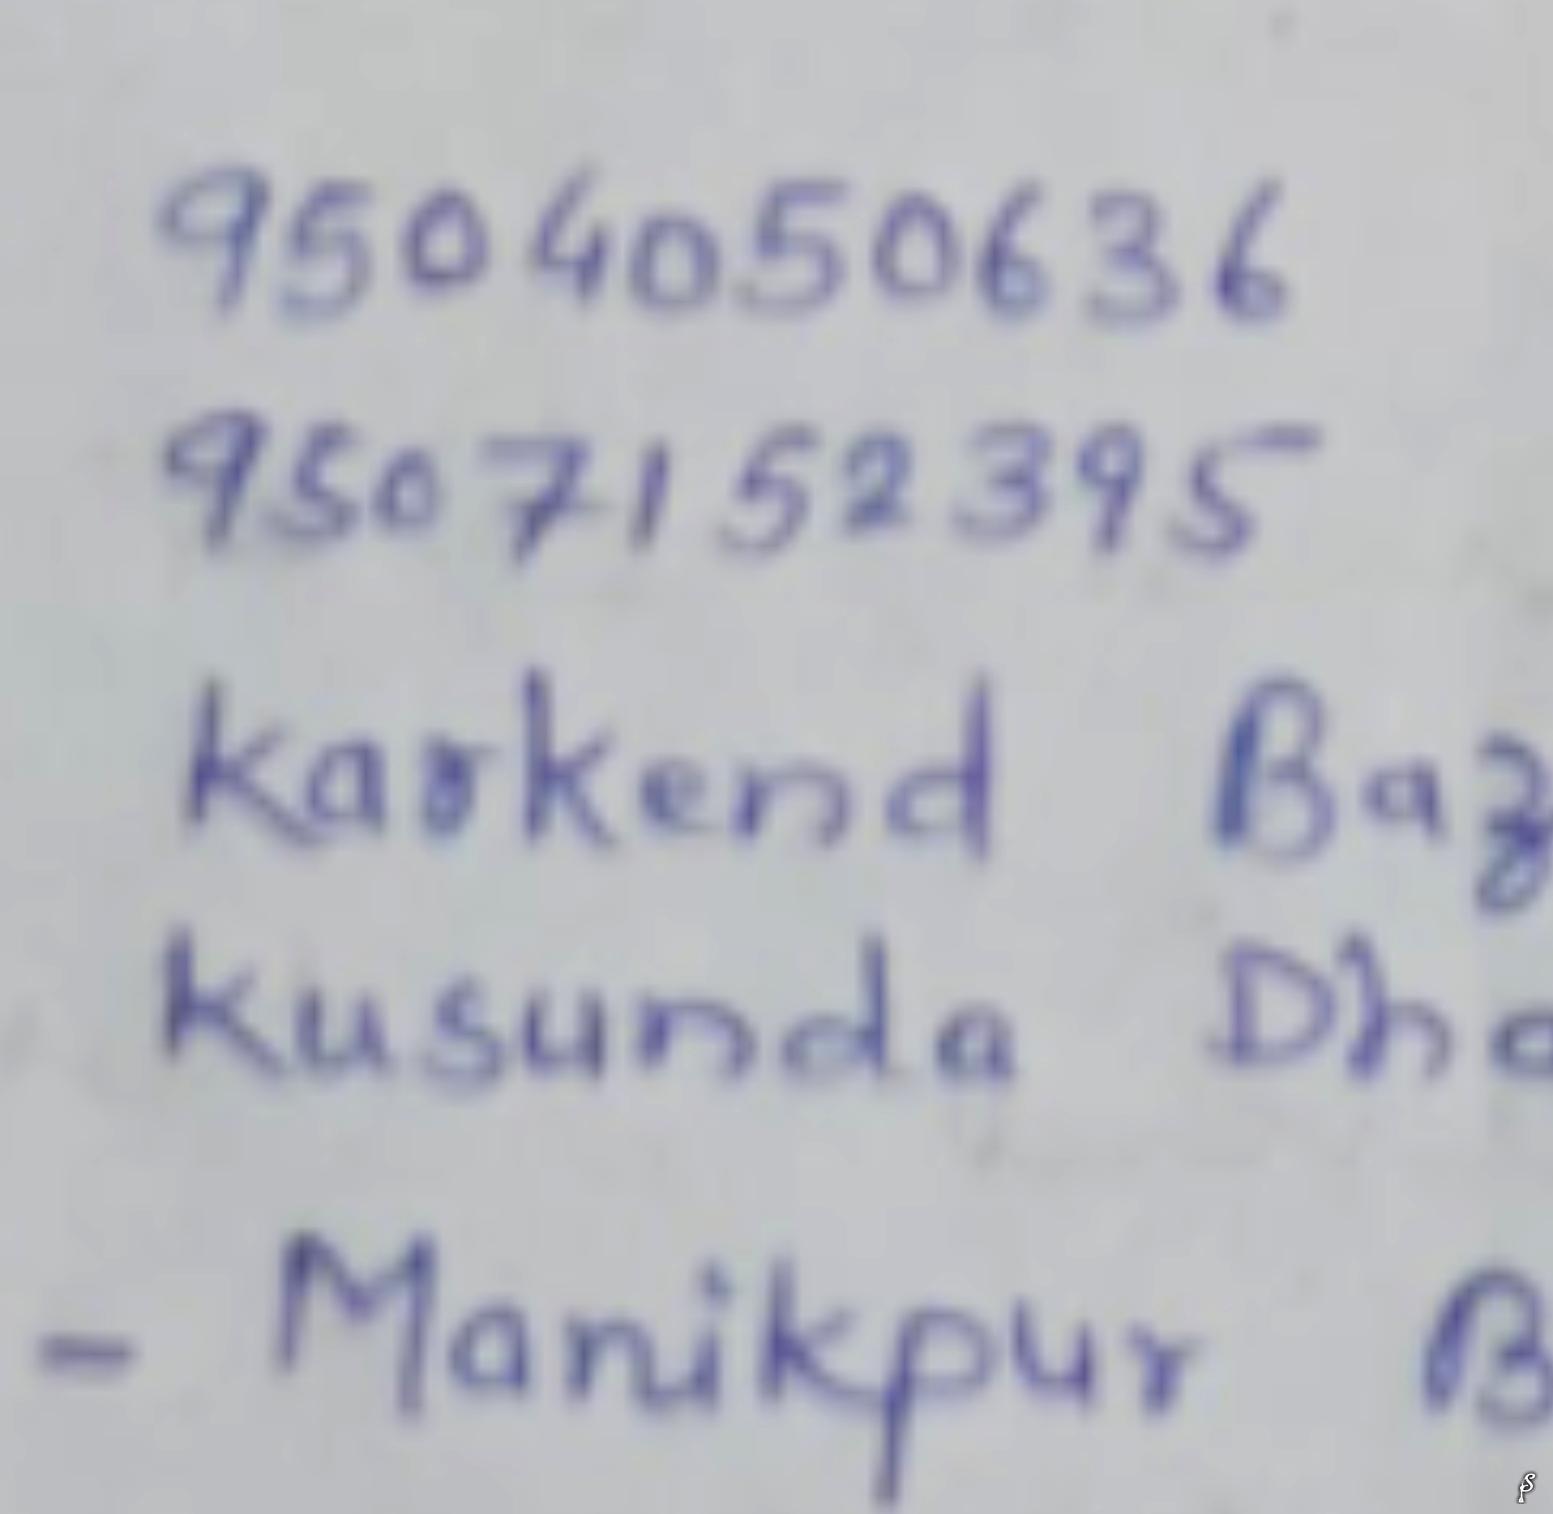 9504050636
9507152395
Karkend Baz
Kusunda Dha
- Manikpur B